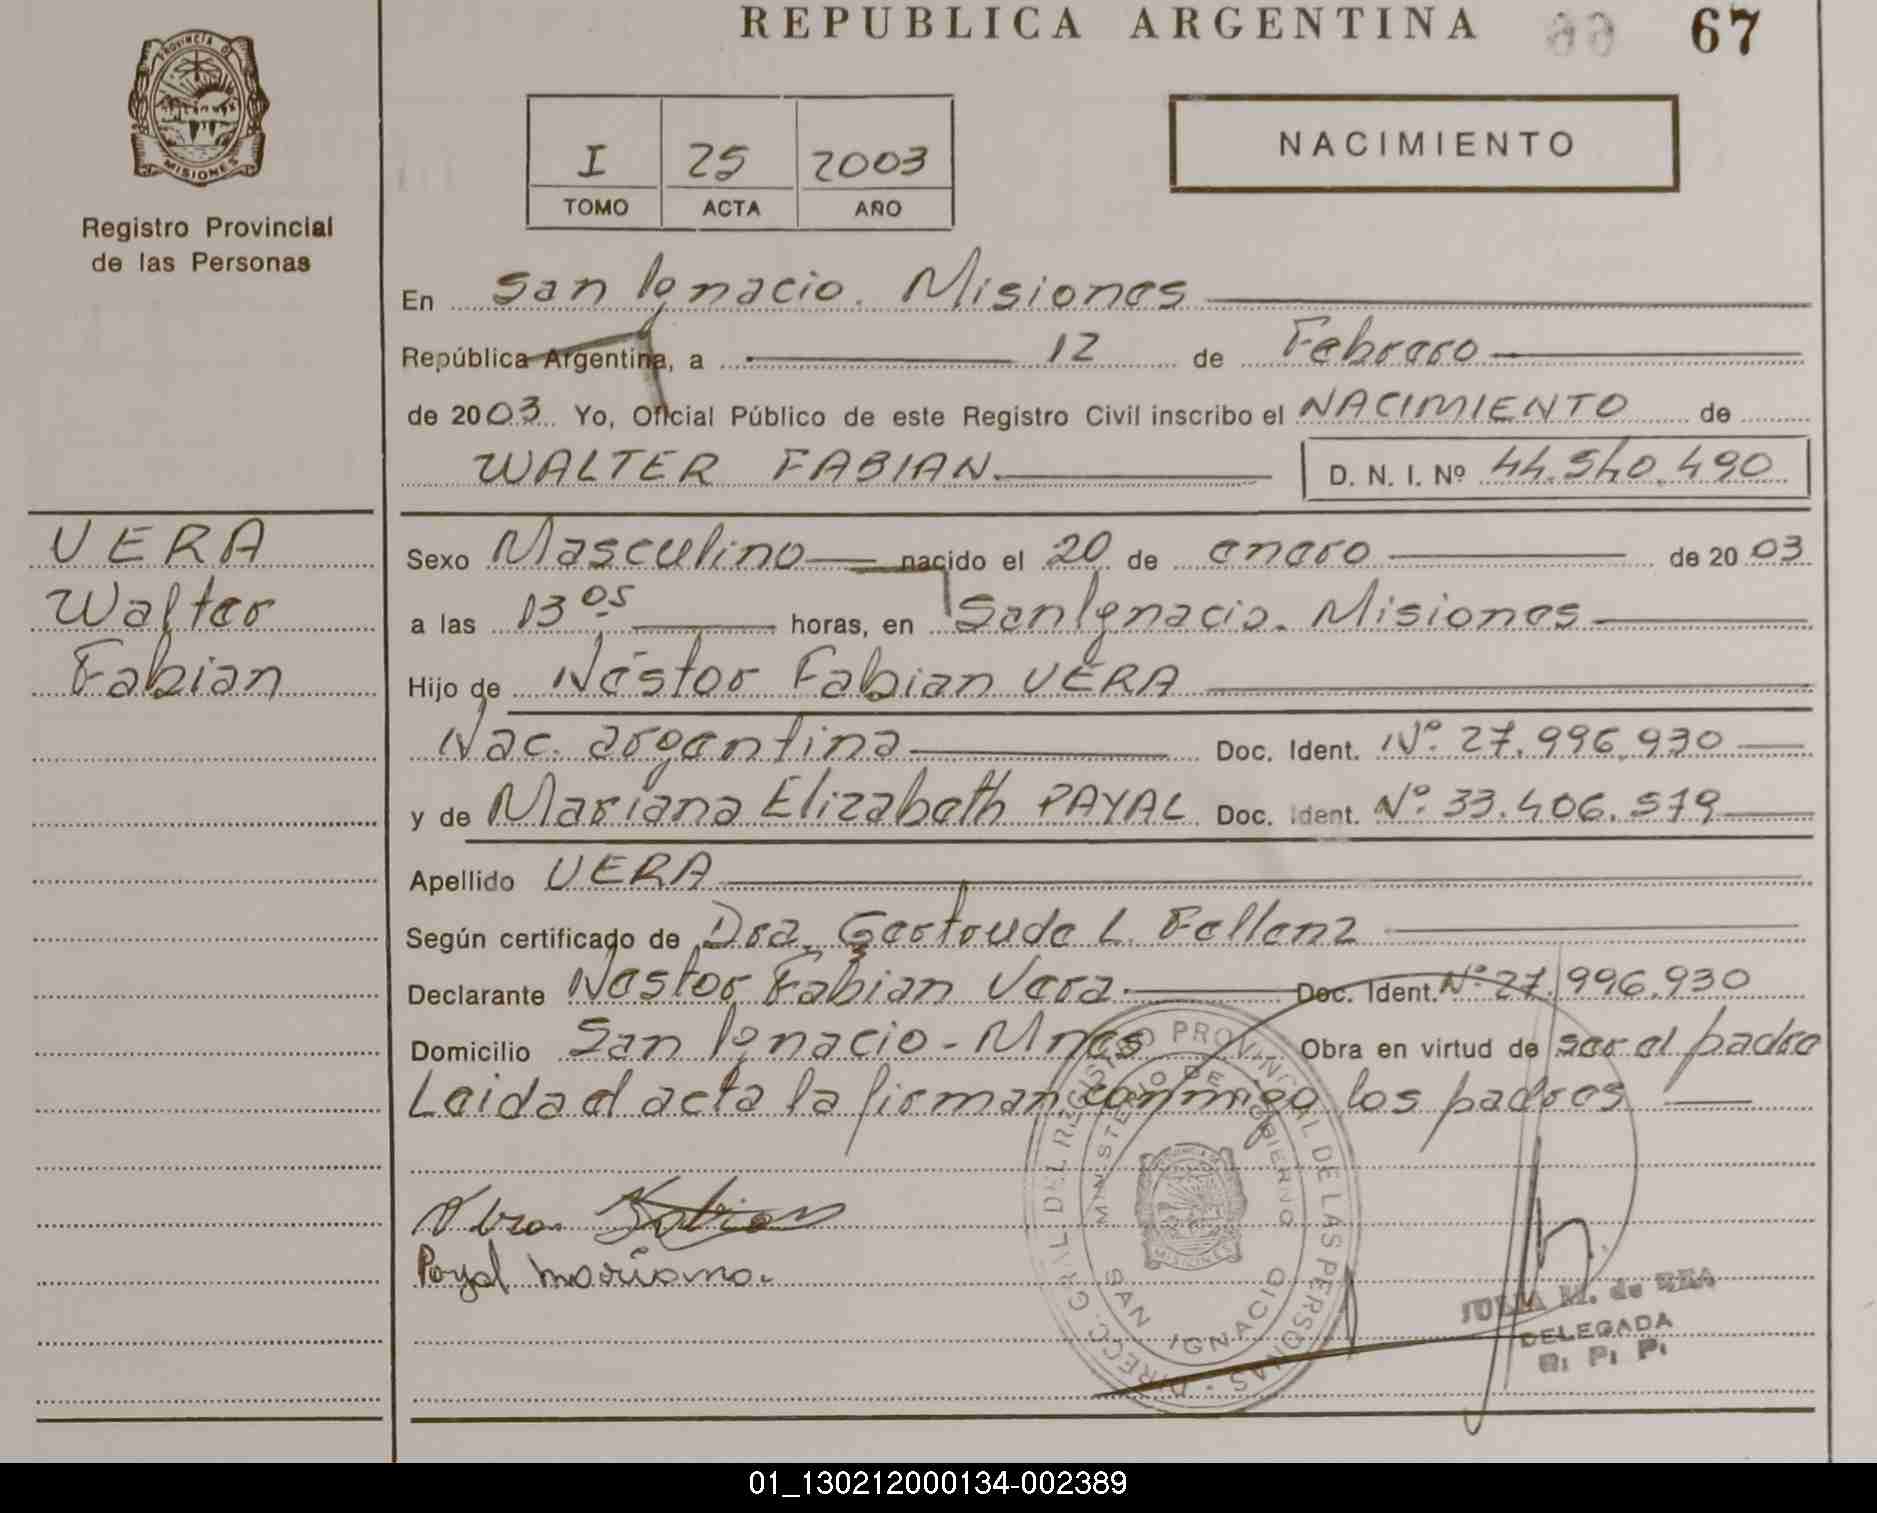 REPUBLICA ARGENTINA 66 67
PROVINCIA D
MISIONES
Registro Provincial
de las Personas
I 25 2003
TOMO ACTA AÑO
NACIMIENTO
En San Ignacio. Misiones
República Argentina, a 12 de Febrero
de 2003. Yo, Oficial Público de este Registro Civil inscribo el NACIMIENTO de
WALTER FABIAN D. N. I. Nº 44.540.490
VERA
Walter
Fabian
Sexo Masculino nacido el 20 de enero de 2003
a las 13 05 horas, en San Ignacio. Misiones
Hijo de Néstor Fabian VERA
Nac. argentina Doc. Ident. Nº 27.996.930
y de Mariana Elizabeth PAYAL Doc. Ident. Nº 33.406.579
Apellido VERA
Según certificado de Dra. Gertrude L. Fellenz
Declarante Nestor Fabian Vera Doc. Ident. Nº 27.996.930
Domicilio San Ignacio - Mnes Obra en virtud de ser el padre
Leida el acta la firman conmigo los padres
Vera Fabian
Payal mariana.
DIRECC. GRAL. DEL REGISTRO PROVINCIAL DE LAS PERSONAS
MINISTERIO DE GOBIERNO
MISIONES
SAN IGNACIO
JULIA M. de REA
DELEGADA
R. P. P.
01_130212000134-002389